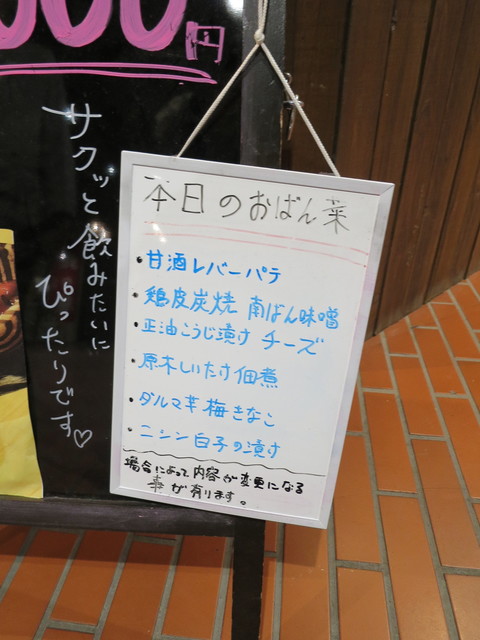 000円
サクッと飲みたいに
ぴったりです♡
本日のおばん菜
・甘酒レバーパテ
・鶏皮炭焼 南ばん味噌
・正油こうじ漬け チーズ
・原木しいたけ佃煮
・ダルマ芋 梅きなこ
・ニシン白子の漬け
場合によって内容が変更になる
事が有ります。